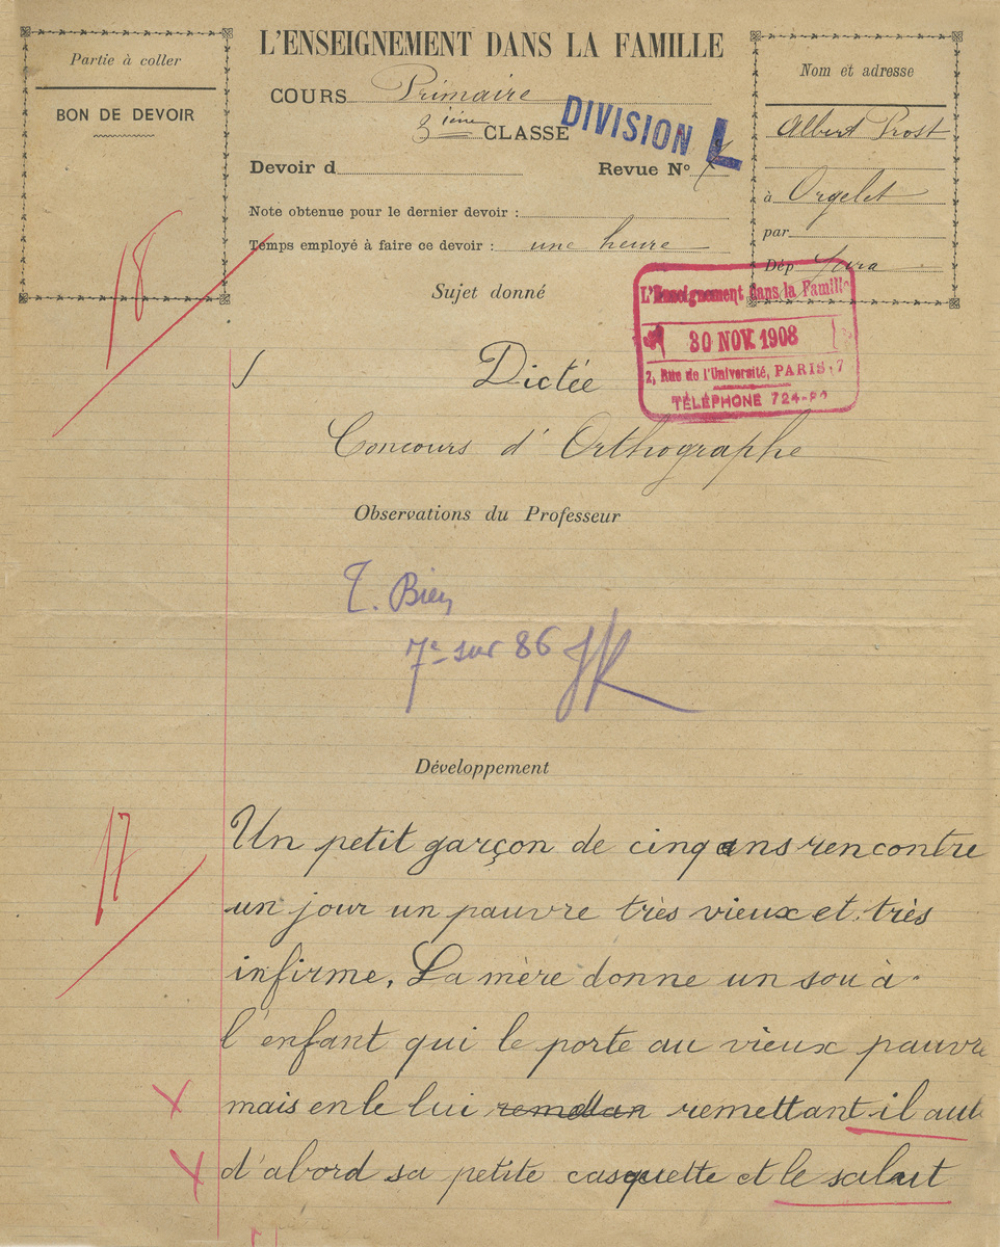 Partie à coller
BON DE DEVOIR
L'ENSEIGNEMENT DANS LA FAMILLE
COURS Primaire
3ième CLASSE
DIVISION L
Devoir d
Revue N°
Note obtenue pour le dernier devoir :
Temps employé à faire ce devoir : une heure
Nom et adresse
Albert Prost
à Orgelet
par
Dép Jura
18
Sujet donné
L'Enseignement dans la Famille
30 NOV 1908
2, Rue de l'Université, PARIS. 7
TÉLÉPHONE 724-
Dictée
Concours d'Orthographe
Observations du Professeur
T. Bien
7e sur 86
Développement
17
Un petit garçon de cinq ans rencontre
un jour un pauvre très vieux et très
infirme. La mère donne un sou à
l'enfant qui le porte au vieux pauvre
mais en le lui remettan remettant il aute
d'abord sa petite casquette et le salut